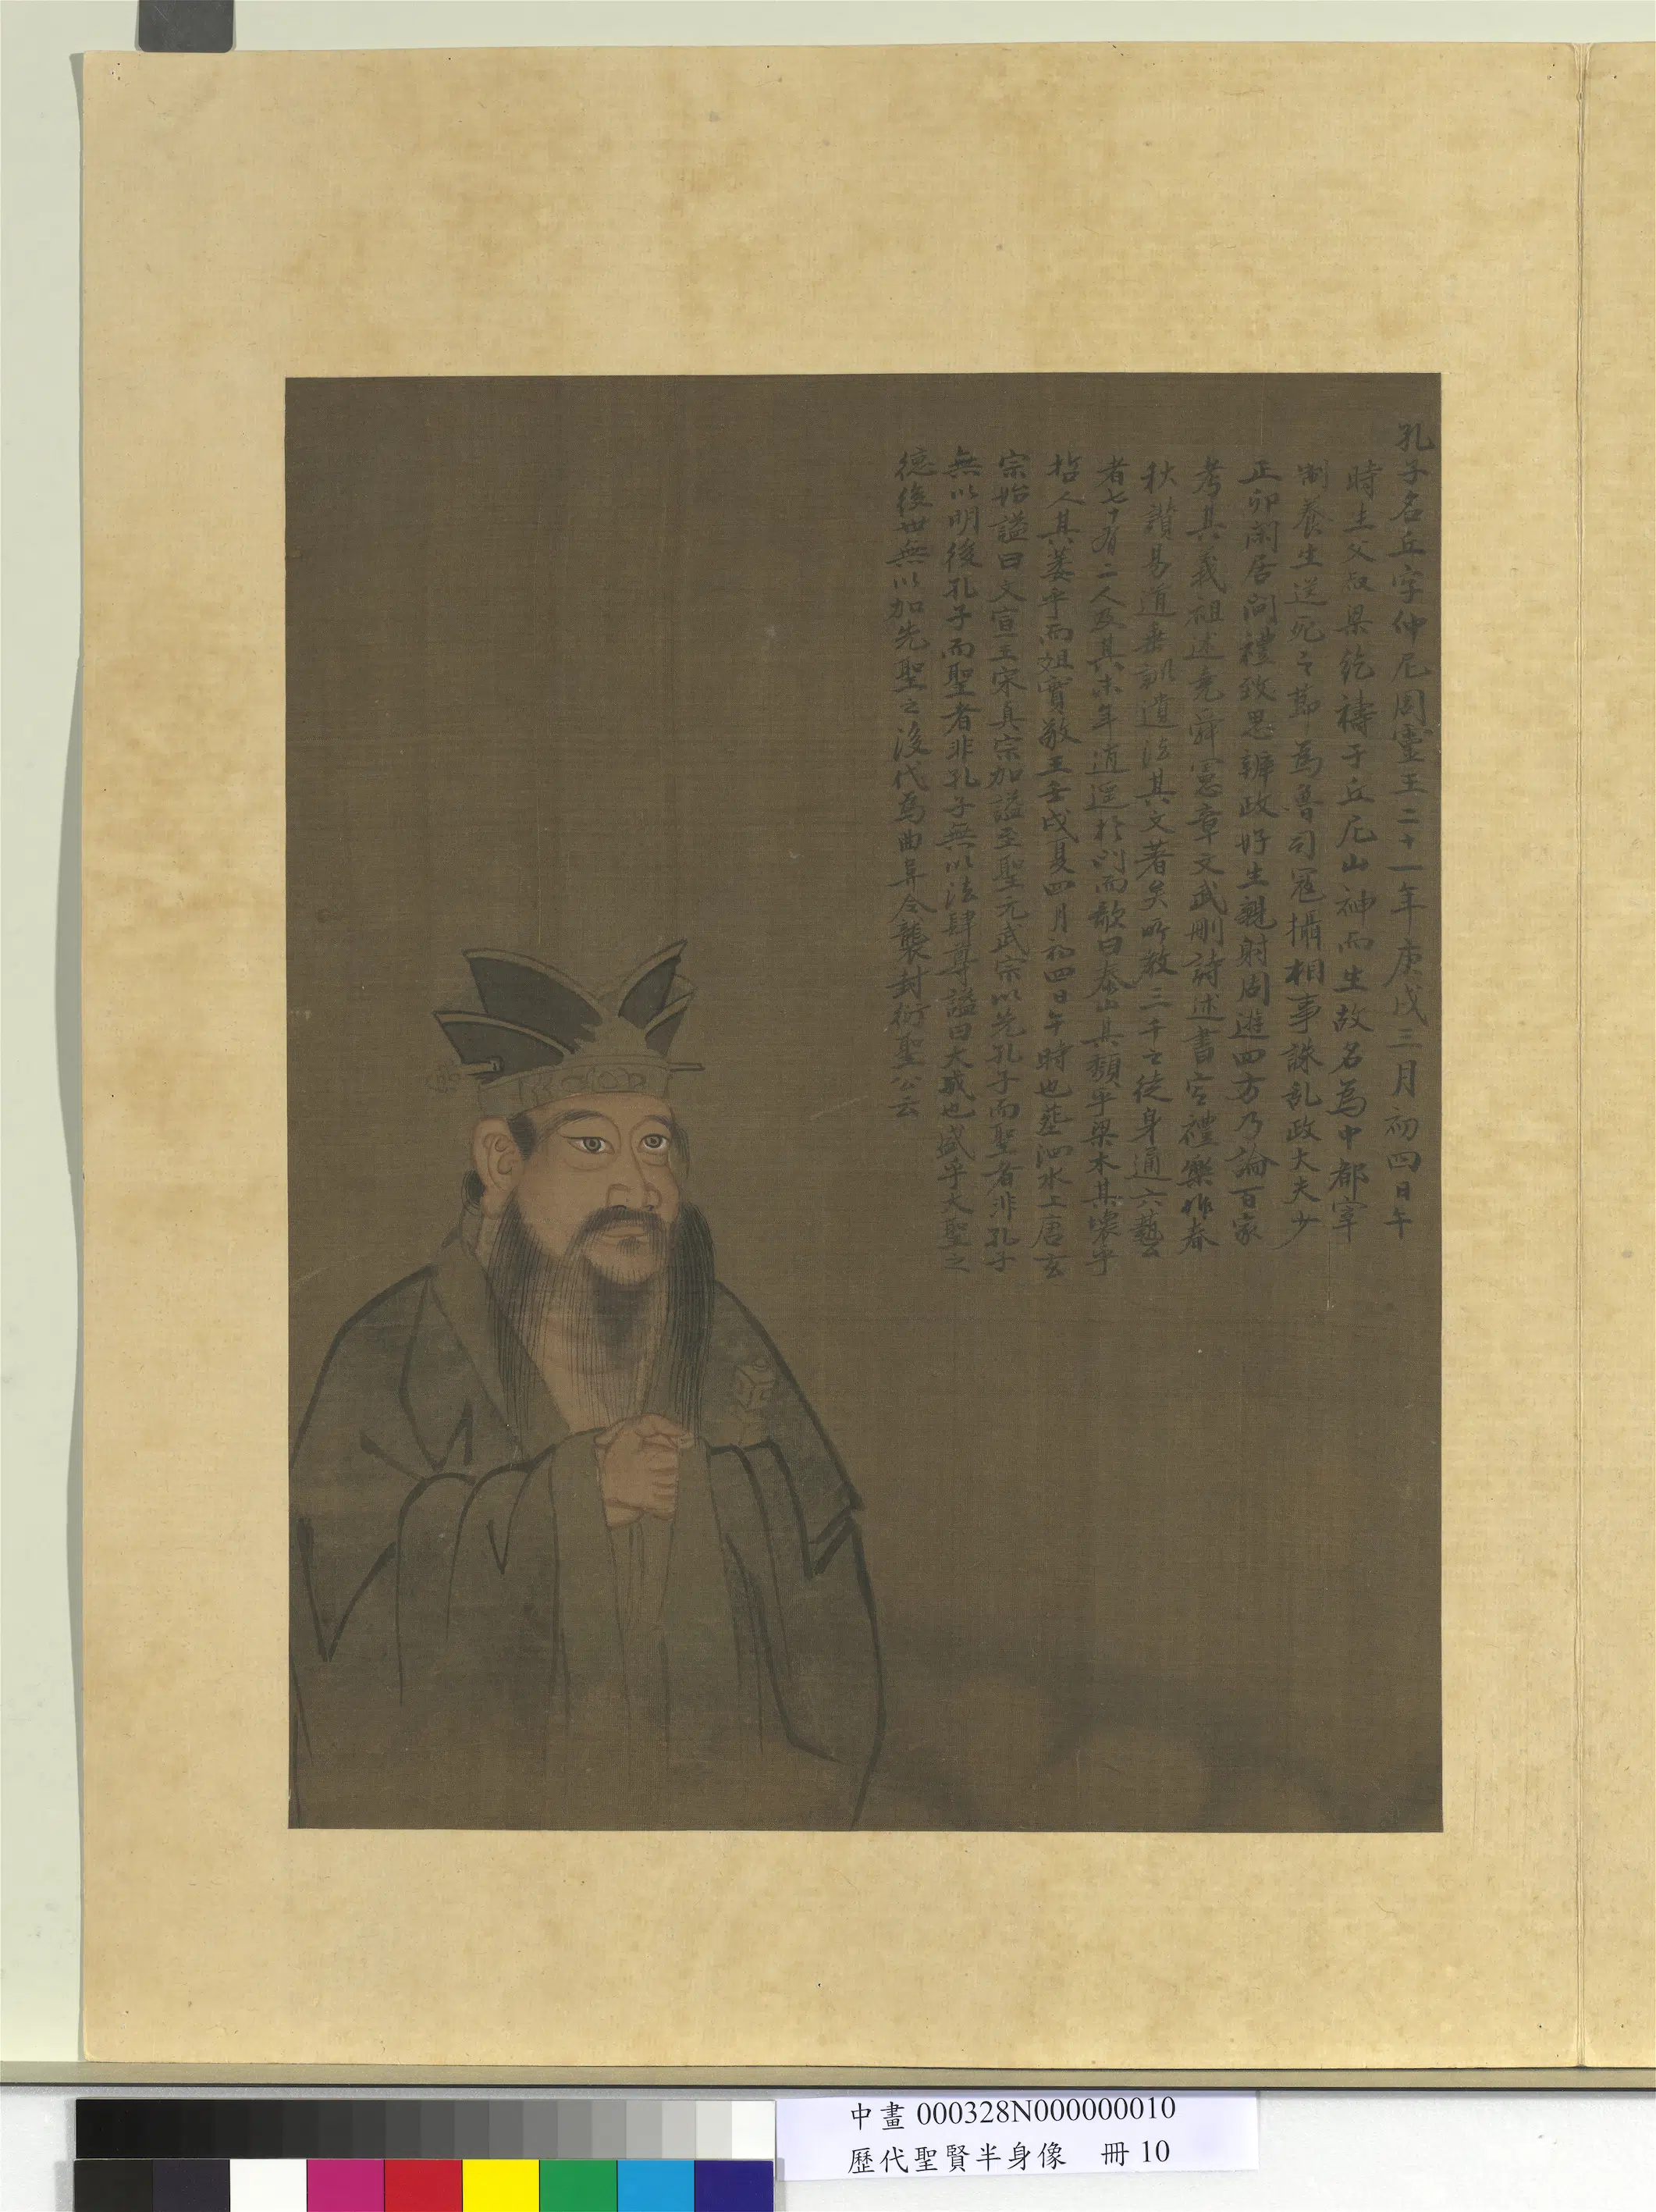 孔子名丘字仲尼周靈王二十一年庚戌三月初四日午
時生父叔梁紇禱于丘尼山神而生故名為中都宰
制養生送死之節為魯司寇攝相事誅乱政大夫少
正卯閑居問禮致思辨政好生親射周遊四方乃論百家
考其義祖述堯舜憲章文武刪詩述書定禮樂作春
秋讃易道垂訓遺法其文著矣所教三千之徒身通六藝
者七十有二人及其末年逍遥於門而歌曰泰山其頽乎梁木其壞乎
哲人其萎乎而殂實敬王壬戌夏四月初四日午時也葬泗水上唐玄
宗始謚曰文宣王宋真宗加謚至聖元武宗以先孔子而聖者非孔子
無以明後孔子而聖者非孔子無以法肆尊謚曰大成也盛乎大聖之
德後世無以加先聖之後代為曲阜令襲封衍聖公云
中畫 000328N000000010
歷代聖賢半身像 冊 10